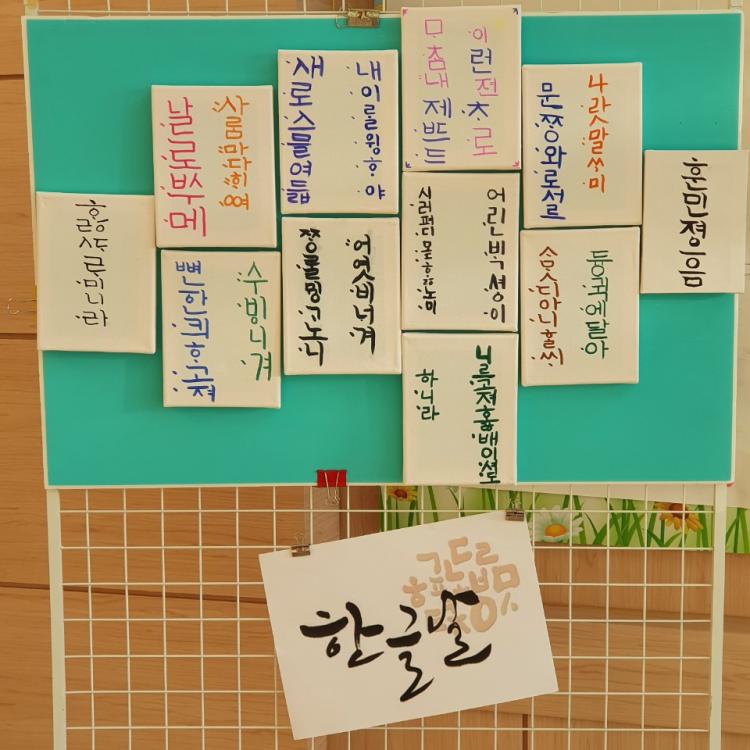 훈민졍음
나랏말ᄊᆞ미
듕귁에달아
문ᄍᆞᆼ와로서르
ᄉᆞᄆᆞᆺ디아니ᄒᆞᆯᄊᆡ
이런젼ᄎᆞ로
어린ᄇᆡᆨ셩이
니르고져호ᇙ배이셔도
ᄆᆞᄎᆞᆷ내제ᄠᅳ드
시러펴디몯ᄒᆞᇙ노미
하니라
내이ᄅᆞᆯ윙ᄒᆞ야
어엿비너겨
새로스믈여듧
ᄍᆞᆼᄅᆞᆯᄆᆡᆼᄀᆞ노니
사ᄅᆞᆷ마다ᄒᆡᅇᅧ
수ᄫᅵ니겨
날로ᄡᅮ메
뼌한킈ᄒᆞ고져
ᄒᆞᇙᄯᆞᄅᆞ미니라
한글날